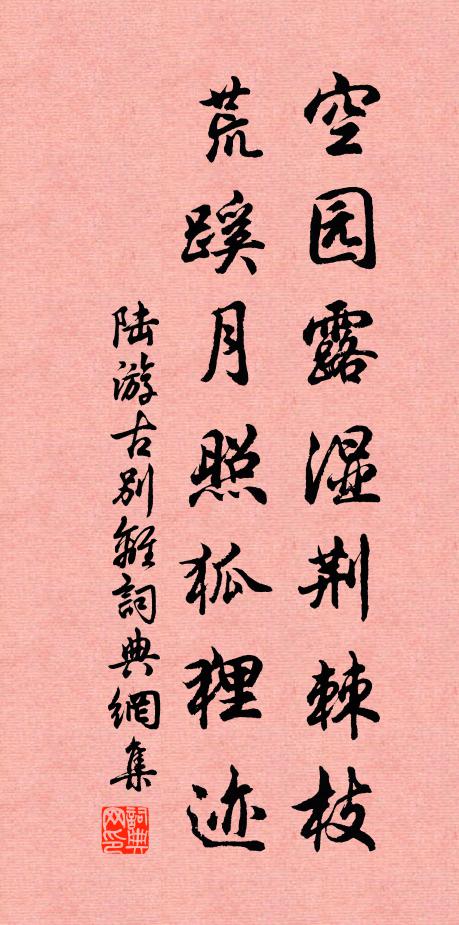 空园露湿荆棘枝
荒蹊月照狐狸迹
陆游古别離詞典網集
詞典网印